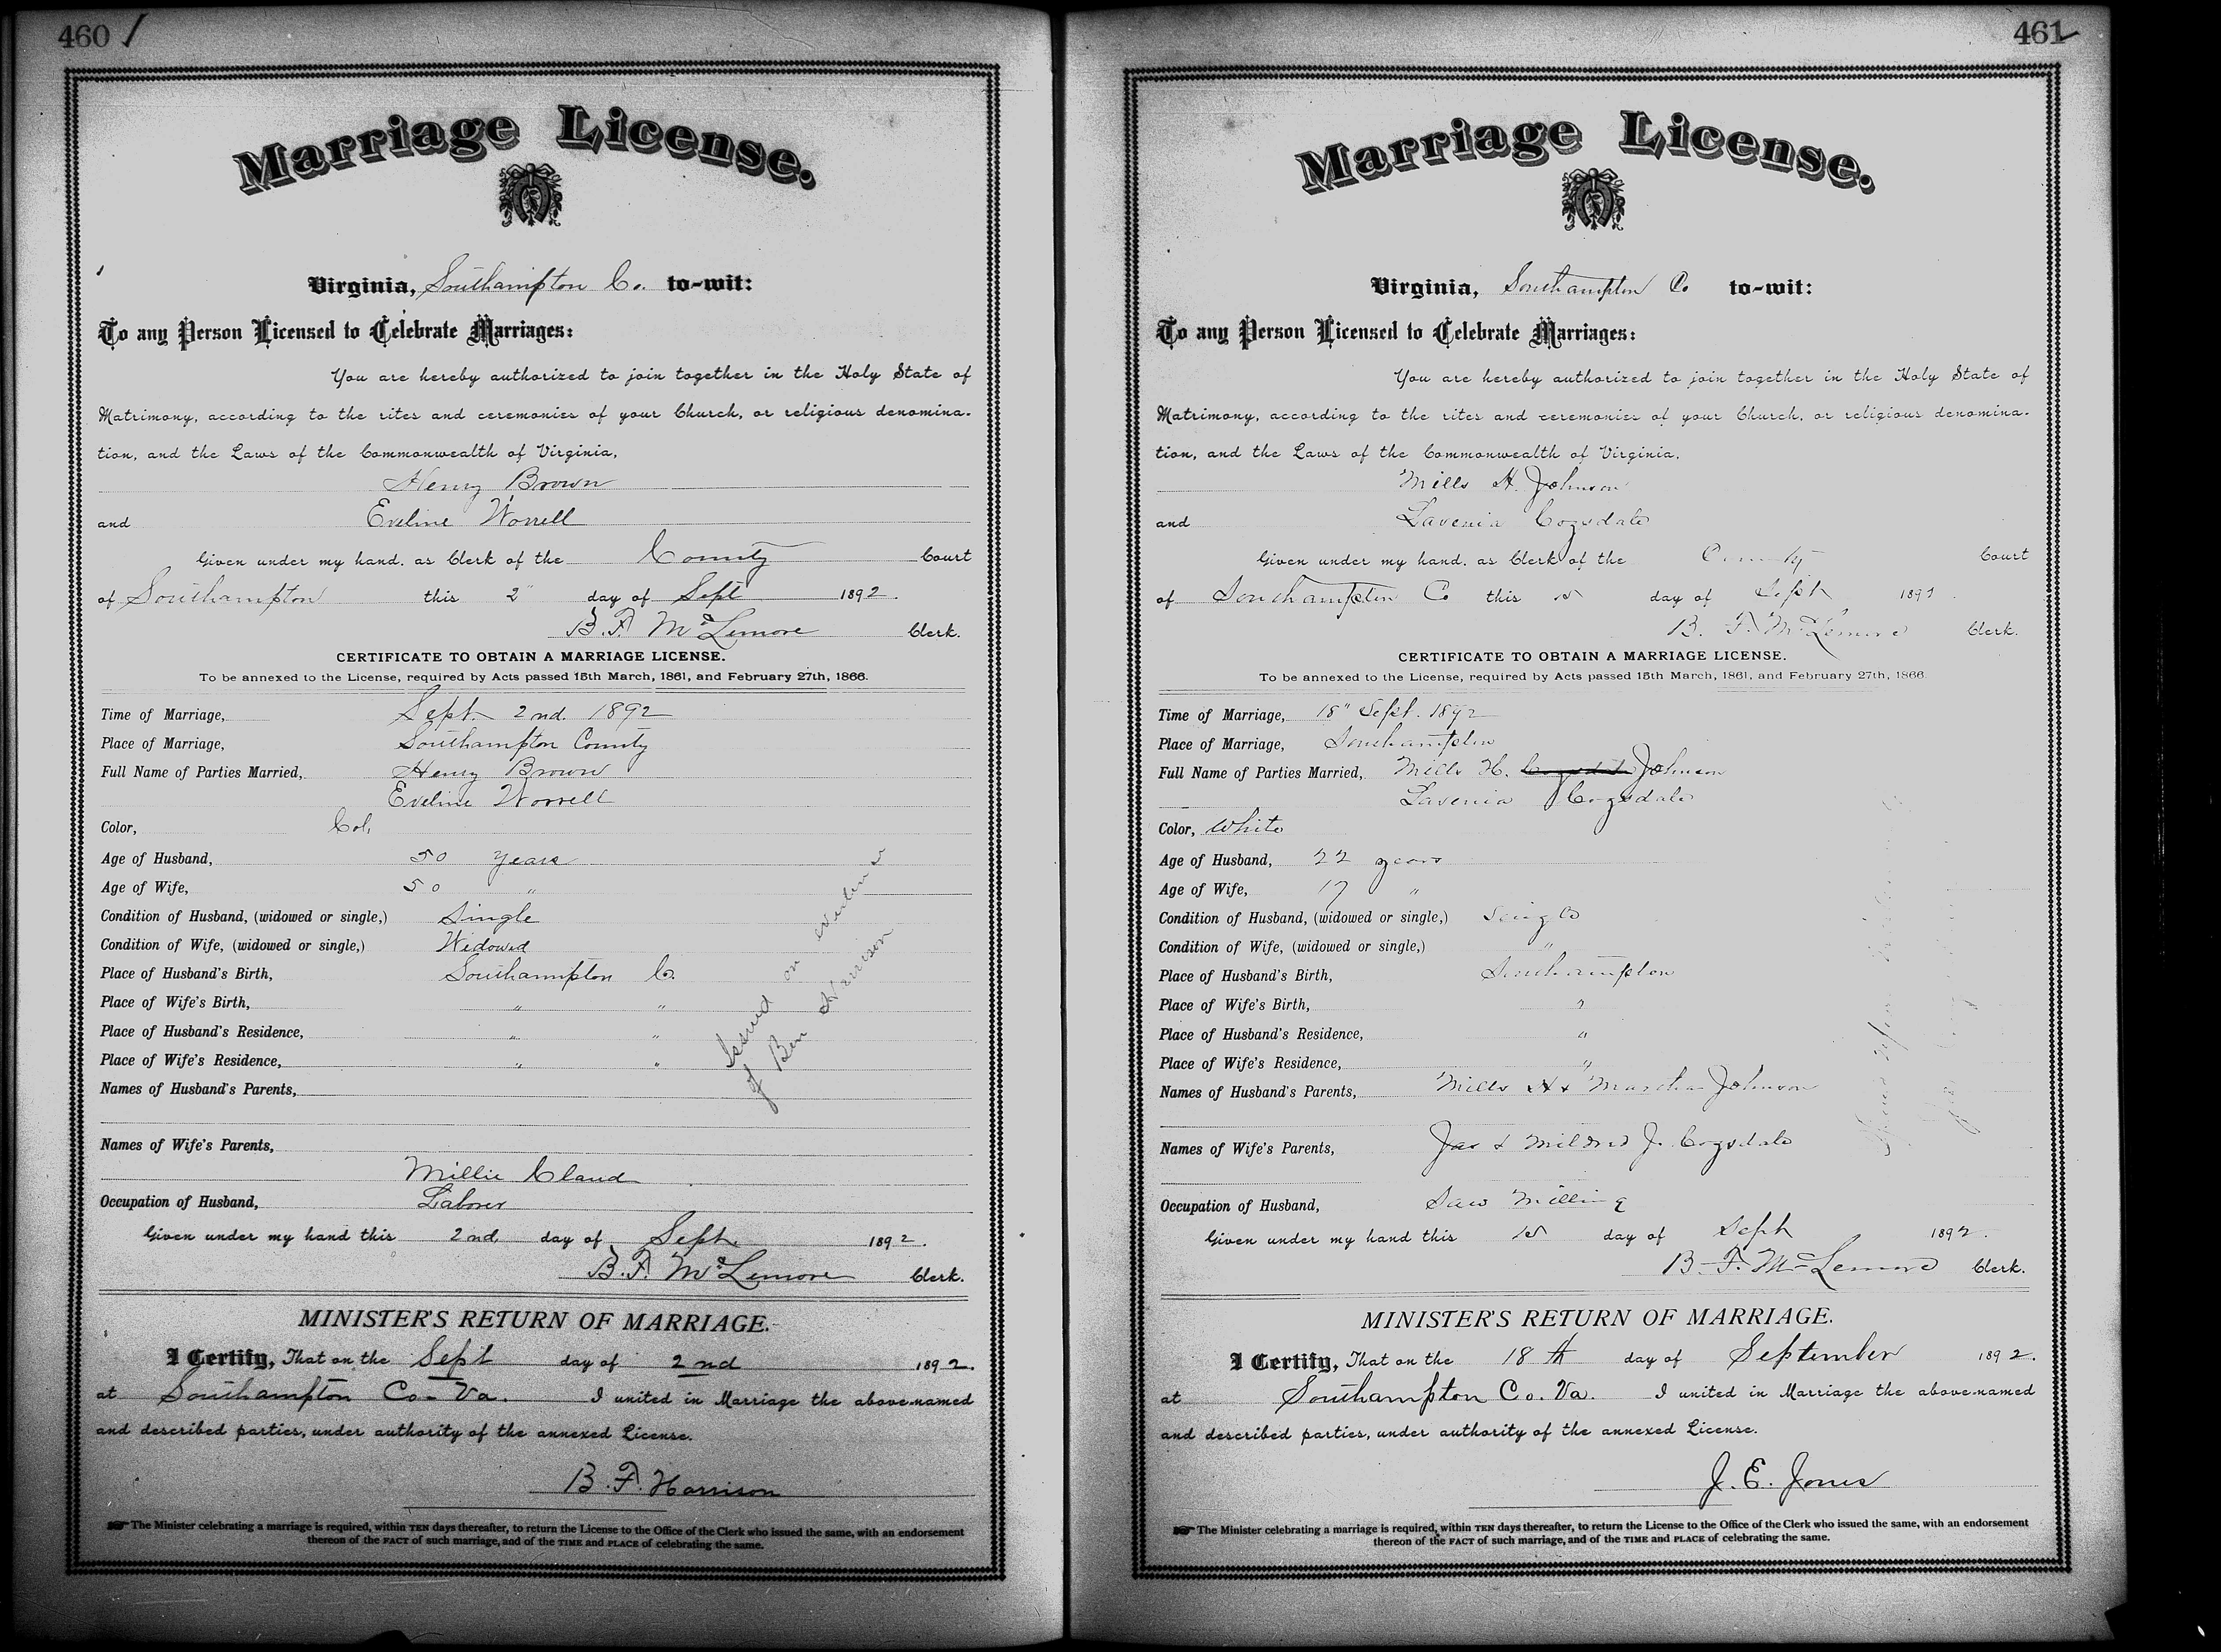 460
Marriage License.
Virginia, Southampton Co. to-wit:
To any Person Licensed to Celebrate Marriages:
You are hereby authorized to join together in the Holy State of
Matrimony, according to the rites and ceremonies of your Church, or religious denomina-
tion, and the Laws of the Commonwealth of Virginia,
Henry Brown
and Eveline Worrell
Given under my hand, as Clerk of the County Court
of Southampton this 2" day of Sept 1892.
B. F. McLemore Clerk.
CERTIFICATE TO OBTAIN A MARRIAGE LICENSE.
To be annexed to the License, required by Acts passed 15th March, 1861, and February 27th, 1866.
Time of Marriage, Sept. 2nd. 1892
Place of Marriage, Southampton County
Full Name of Parties Married, Henry Brown
Eveline Worrell
Color, Col,
Age of Husband, 50 years
Age of Wife, 50 "
Condition of Husband, (widowed or single,) Single
Condition of Wife, (widowed or single,) Widowed
Place of Husband's Birth, Southampton Co.
Place of Wife's Birth, " "
Place of Husband's Residence, " "
Place of Wife's Residence, " "
Names of Husband's Parents,
Names of Wife's Parents,
Millie Claud
Occupation of Husband, Laborer
Issued on evidence
of Ben Harrison
Given under my hand this 2nd day of Sept 1892.
B. F. McLemore Clerk.
MINISTER'S RETURN OF MARRIAGE.
I Certify, That on the Sept day of 2nd 1892.
at Southampton Co. Va. I united in Marriage the above-named
and described parties, under authority of the annexed License.
B. F. Harrison
The Minister celebrating a marriage is required, within TEN days thereafter, to return the License to the Office of the Clerk who issued the same, with an endorsement
thereon of the FACT of such marriage, and of the TIME and PLACE of celebrating the same.
461
Marriage License.
Virginia, Southampton Co to-wit:
To any Person Licensed to Celebrate Marriages:
You are hereby authorized to join together in the Holy State of
Matrimony, according to the rites and ceremonies of your Church, or religious denomina-
tion, and the Laws of the Commonwealth of Virginia,
Mills H. Johnson
and Lavenia Cogsdale
Given under my hand, as Clerk of the County Court
of Southampton Co this 1st day of Sept 189
B. F. McLemore Clerk.
CERTIFICATE TO OBTAIN A MARRIAGE LICENSE.
To be annexed to the License, required by Acts passed 15th March, 1861, and February 27th, 1866
Time of Marriage, 18" Sept. 1892
Place of Marriage, Southampton
Full Name of Parties Married, Mills H. Johnson
Lavenia Cogsdale
Color, White
Age of Husband, 22 years
Age of Wife, 17 "
Condition of Husband, (widowed or single,) Single
Condition of Wife, (widowed or single,) "
Place of Husband's Birth, Southampton
Place of Wife's Birth, "
Place of Husband's Residence, "
Place of Wife's Residence, "
Names of Husband's Parents, Mills H & Martha Johnson
Names of Wife's Parents, Jas & Mildred J. Cogsdale
Occupation of Husband, Saw Milling
Given under my hand this 1st day of Sept 1892.
B. F. McLemore Clerk.
MINISTER'S RETURN OF MARRIAGE.
I Certify, That on the 18th day of September 1892.
at Southampton Co. Va. I united in Marriage the above-named
and described parties, under authority of the annexed License.
J. E. Jones
The Minister celebrating a marriage is required, within TEN days thereafter, to return the License to the Office of the Clerk who issued the same, with an endorsement
thereon of the FACT of such marriage, and of the TIME and PLACE of celebrating the same.